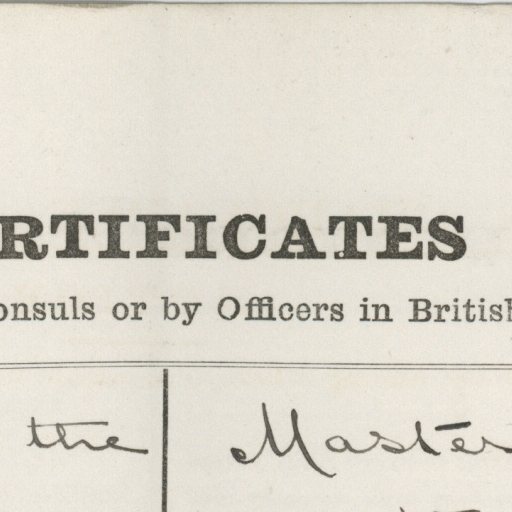 RTIFICATES
onsuls or by Officers in British
the Master